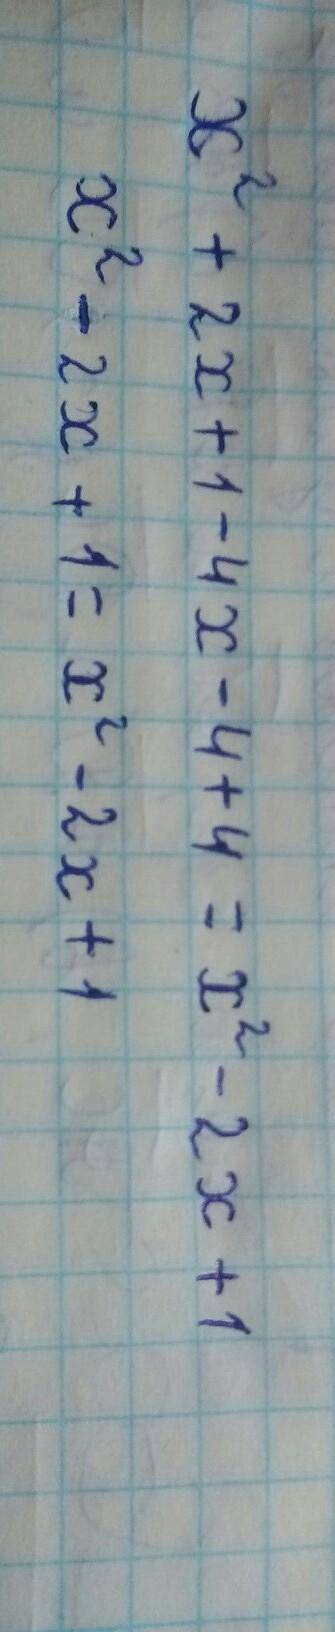 x² + 2x + 1 - 4x - 4 + 4 = x² - 2x + 1
x² - 2x + 1 = x² - 2x + 1